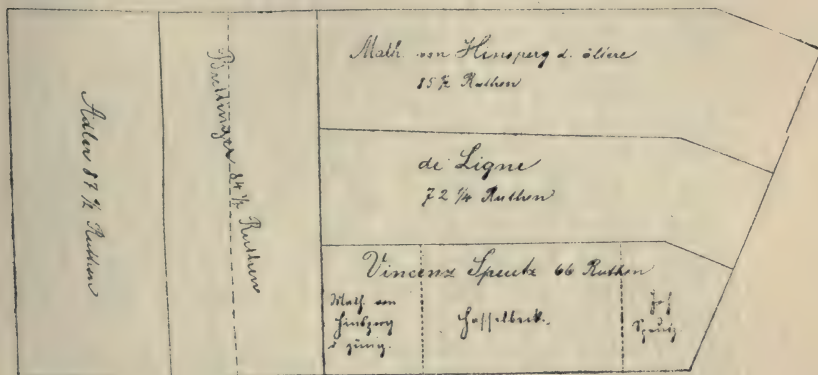 Adler 87 ½ Ruthen
84 ½ Ruthen
Math. von Hinsperg d. ältere
85 ½ Ruthen
de Ligne
72 ¼ Ruthen
Vincenz Speutz 66 Ruthen
Math. von
Hinsperg
d. jüng.
Hasselbeck.
Jos
Speutz